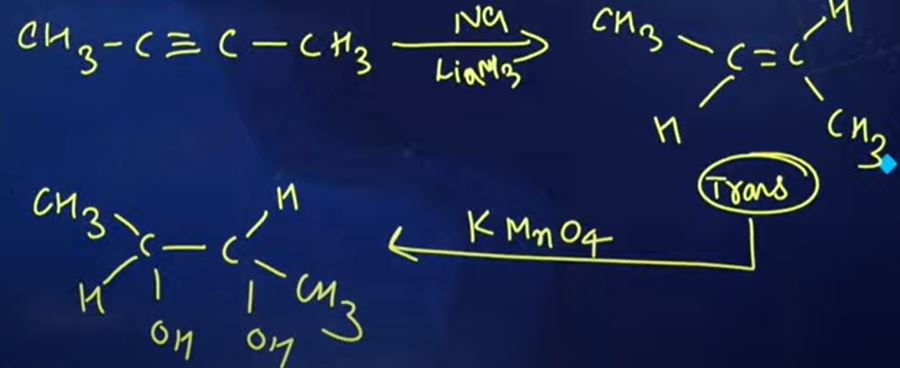 CH3-C≡C-CH3
Na
Liq NH3
CH3
H
C=C
H
CH3
Trans
KMnO4
CH3
H
C-C
H
CH3
OH
OH